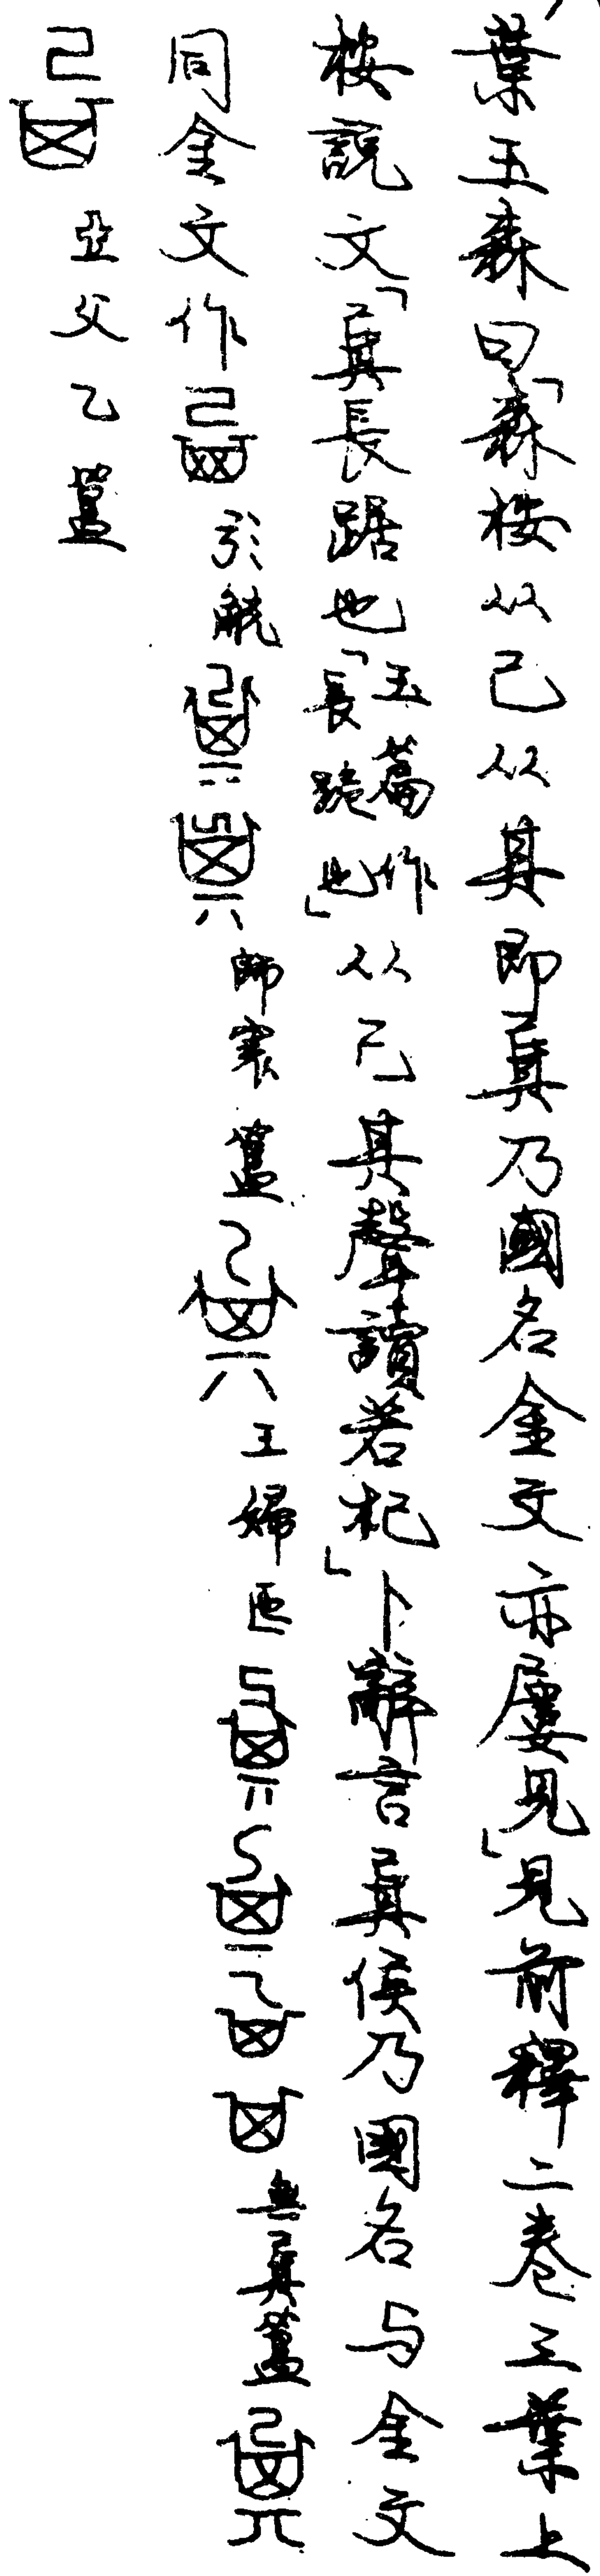 葉玉森曰「森桉从己从其即㠱乃國名金文亦屢見」見前釋二卷三葉上
桉說文「㠱長踞也玉篇作「長跪也」从己其聲讀若杞」卜辭言㠱侯乃國名与金文
同金文作 引觥 師寰簋 王婦匜 無㠱簋
亞父乙簋